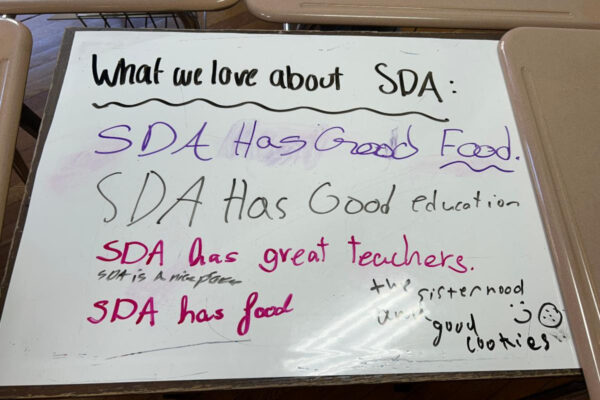 What we love about SDA:
SDA Has Good Food.
SDA Has Good education
SDA has great teachers.
SDA is a nice place
SDA has food
the sisterhood
and good
cookies